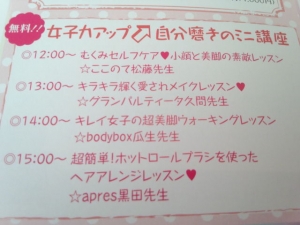 無料!! 女子力アップ⤴自分磨きのミニ講座
◎12:00〜 むくみセルフケア♥小顔と美脚の素敵レッスン
☆ここのて松藤先生
◎13:00〜 キラキラ輝く愛されメイクレッスン♥
☆グランパルティータ久間先生
◎14:00〜 キレイ女子の超美脚ウォーキングレッスン
☆bodybox瓜生先生
◎15:00〜 超簡単!ホットロールブラシを使った
ヘアアレンジレッスン♥
☆apres黒田先生